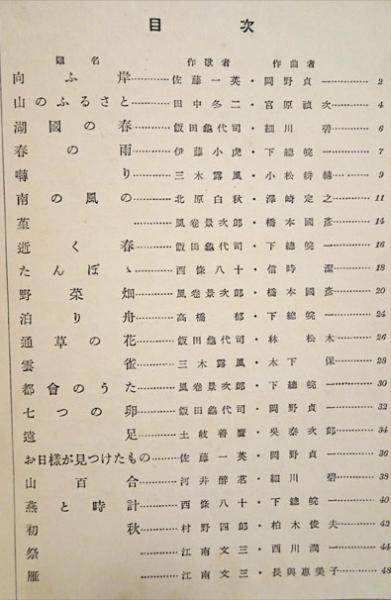 目次
題名 作歌者 作曲者
向ふ岸…………佐藤一英・岡野貞一…………2
山のふるさと…………田中冬二・宮原禎次…………4
湖國の春…………飯田龜代司・細川碧…………6
春の雨…………伊藤小虎・下總皖一…………7
囀り…………三木露風・小松耕輔…………9
南の風の…………北原白秋・澤崎定之…………11
菫…………風卷景次郎・橋本國彥…………14
逝く春…………飯田龜代司・下總皖一…………16
たんぽゝ…………西條八十・信時潔…………18
野菜畑…………風卷景次郎・橋本國彥…………20
泊り舟…………高橋郁・下總皖一…………24
通草の花…………飯田龜代司・林松木…………26
雲雀…………三木露風・木下保…………28
都會のうた…………風卷景次郎・下總皖一…………30
七つの卵…………飯田龜代司・岡野貞一…………32
遠足…………土岐善麿・吳泰次郎…………34
お日樣が見つけたもの…………佐藤一英・岡野貞一…………36
山百合…………河井醉茗・細川碧…………38
燕と時計…………西條八十・下總皖一…………40
初秋…………村野四郎・柏木俊夫…………42
祭…………江南文三・西川潤一…………44
雁…………江南文三・長與惠美子…………48